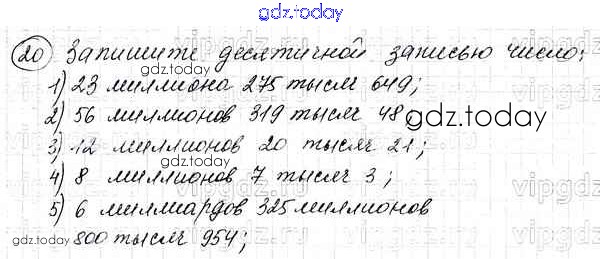 gdz.today
20 Запишите десятичной записью число:
1) 23 миллиона 275 тысяч 649;
2) 56 миллионов 319 тысяч 48
gdz.today
3) 12 миллионов 20 тысяч 21;
4) 8 миллионов 7 тысяч 3;
5) 6 миллиардов 325 миллионов
800 тысяч 954;
gdz.today
gdz.today
gdz.today
gdz.today
gdz.today